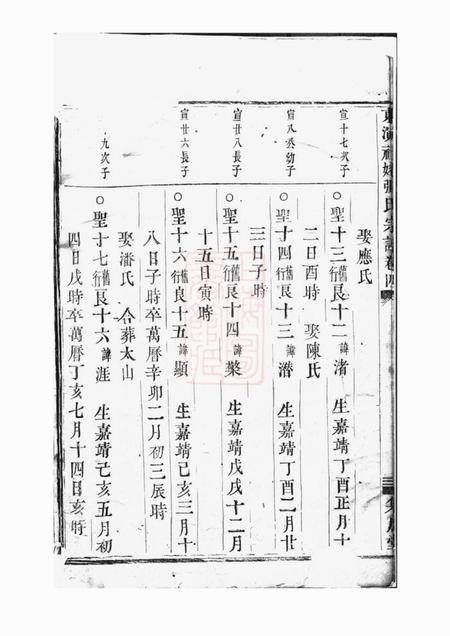 氏宗譜卷四
娶應氏
宣十七次子
○聖十三舊行良十二諱渚 生嘉靖丁酉正月十
二日酉時 娶陳氏
宣八公幼子
○聖十四舊行良十三諱濳 生嘉靖丁酉二月廿
三日子時
宣廿八長子
○聖十五舊行良十四諱槳 生嘉靖戊戌十二月
十五日寅時
宣廿六長子
○聖十六舊行良十五諱顯 生嘉靖己亥三月十
八日子時卒萬曆辛卯二月初三辰時
娶潘氏 合葬太山
九次子
○聖十七舊行良十六諱涯 生嘉靖己亥五月初
四日戌時卒萬曆丁亥七月十四日亥時